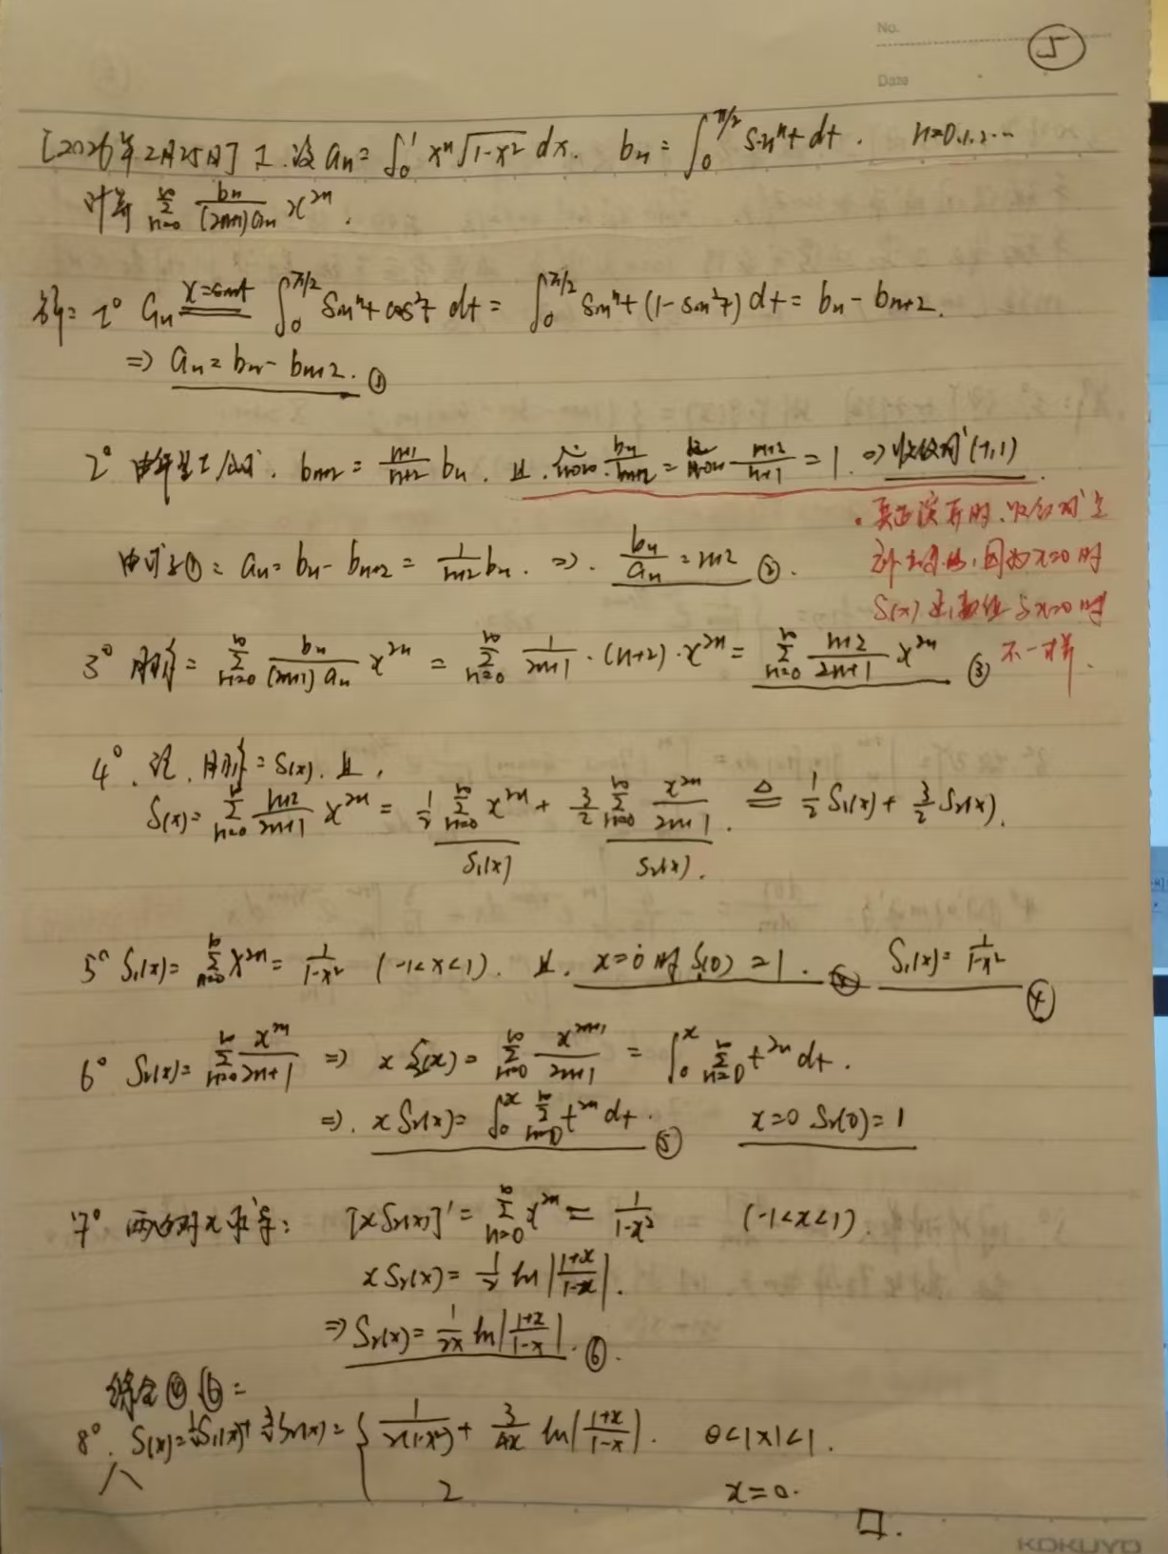 No.
⑤
Date
[2026年2月25日] 1. 设 aₙ = ∫₀¹ xⁿ√(1-x²) dx. bₙ = ∫₀^{π/2} sinⁿt dt. n=0.1.2...
计算 Σ_{n=0}^{∞} bₙ/((2n+1)aₙ) x²ⁿ.
解: 1° aₙ =(x=sint)= ∫₀^{π/2} sinⁿt cos²t dt = ∫₀^{π/2} sinⁿt (1-sin²t) dt = bₙ - bₙ₊₂.
⇒ aₙ = bₙ - bₙ₊₂. ①
2° 由华里士公式. bₙ₊₂ = (n+1)/(n+2) bₙ. 且. lim_{n→∞} bₙ/bₙ₊₂ = lim_{n→∞} (n+2)/(n+1) = 1. ⇒ 收敛域(-1,1)
由式子①: aₙ = bₙ - bₙ₊₂ = 1/(n+2) bₙ. ⇒. bₙ/aₙ = n+2 ②.
· 真正演算时,收敛域
因为x=0时
S(x) 与x=0时
不一样.
3° 原式 = Σ_{n=0}^{∞} bₙ/((2n+1)aₙ) x²ⁿ = Σ_{n=0}^{∞} 1/(2n+1)·(n+2)·x²ⁿ = Σ_{n=0}^{∞} (n+2)/(2n+1) x²ⁿ ③
4°. 设. 原式 = S(x). 且,
S(x) = Σ_{n=0}^{∞} (n+2)/(2n+1) x²ⁿ = 1/2 Σ_{n=0}^{∞} x²ⁿ + 3/2 Σ_{n=0}^{∞} x²ⁿ/(2n+1). ≜ 1/2 S₁(x) + 3/2 S₂(x).
S₁(x) S₂(x).
5° S₁(x) = Σ_{n=0}^{∞} x²ⁿ = 1/(1-x²) (-1<x<1). 且. x=0时 S₁(0) = 1. S₁(x) = 1/(1-x²) ④
6° S₂(x) = Σ_{n=0}^{∞} x²ⁿ/(2n+1) ⇒ x S₂(x) = Σ_{n=0}^{∞} x²ⁿ⁺¹/(2n+1) = ∫₀ˣ Σ_{n=0}^{∞} t²ⁿ dt.
⇒. x S₂(x) = ∫₀ˣ Σ_{n=0}^{∞} t²ⁿ dt. ⑤ x=0 S₂(0) = 1
7° 两边对x求导: [x S₂(x)]' = Σ_{n=0}^{∞} x²ⁿ = 1/(1-x²) (-1<x<1).
x S₂(x) = 1/2 ln|(1+x)/(1-x)|.
⇒ S₂(x) = 1/(2x) ln|(1+x)/(1-x)|. ⑥.
综合④⑥:
8°. S(x) = 1/2 S₁(x) + 3/2 S₂(x) = { 1/(2(1-x²)) + 3/(4x) ln|(1+x)/(1-x)|. 0<|x|<1.
2 x=0.
□.
KOKUYO